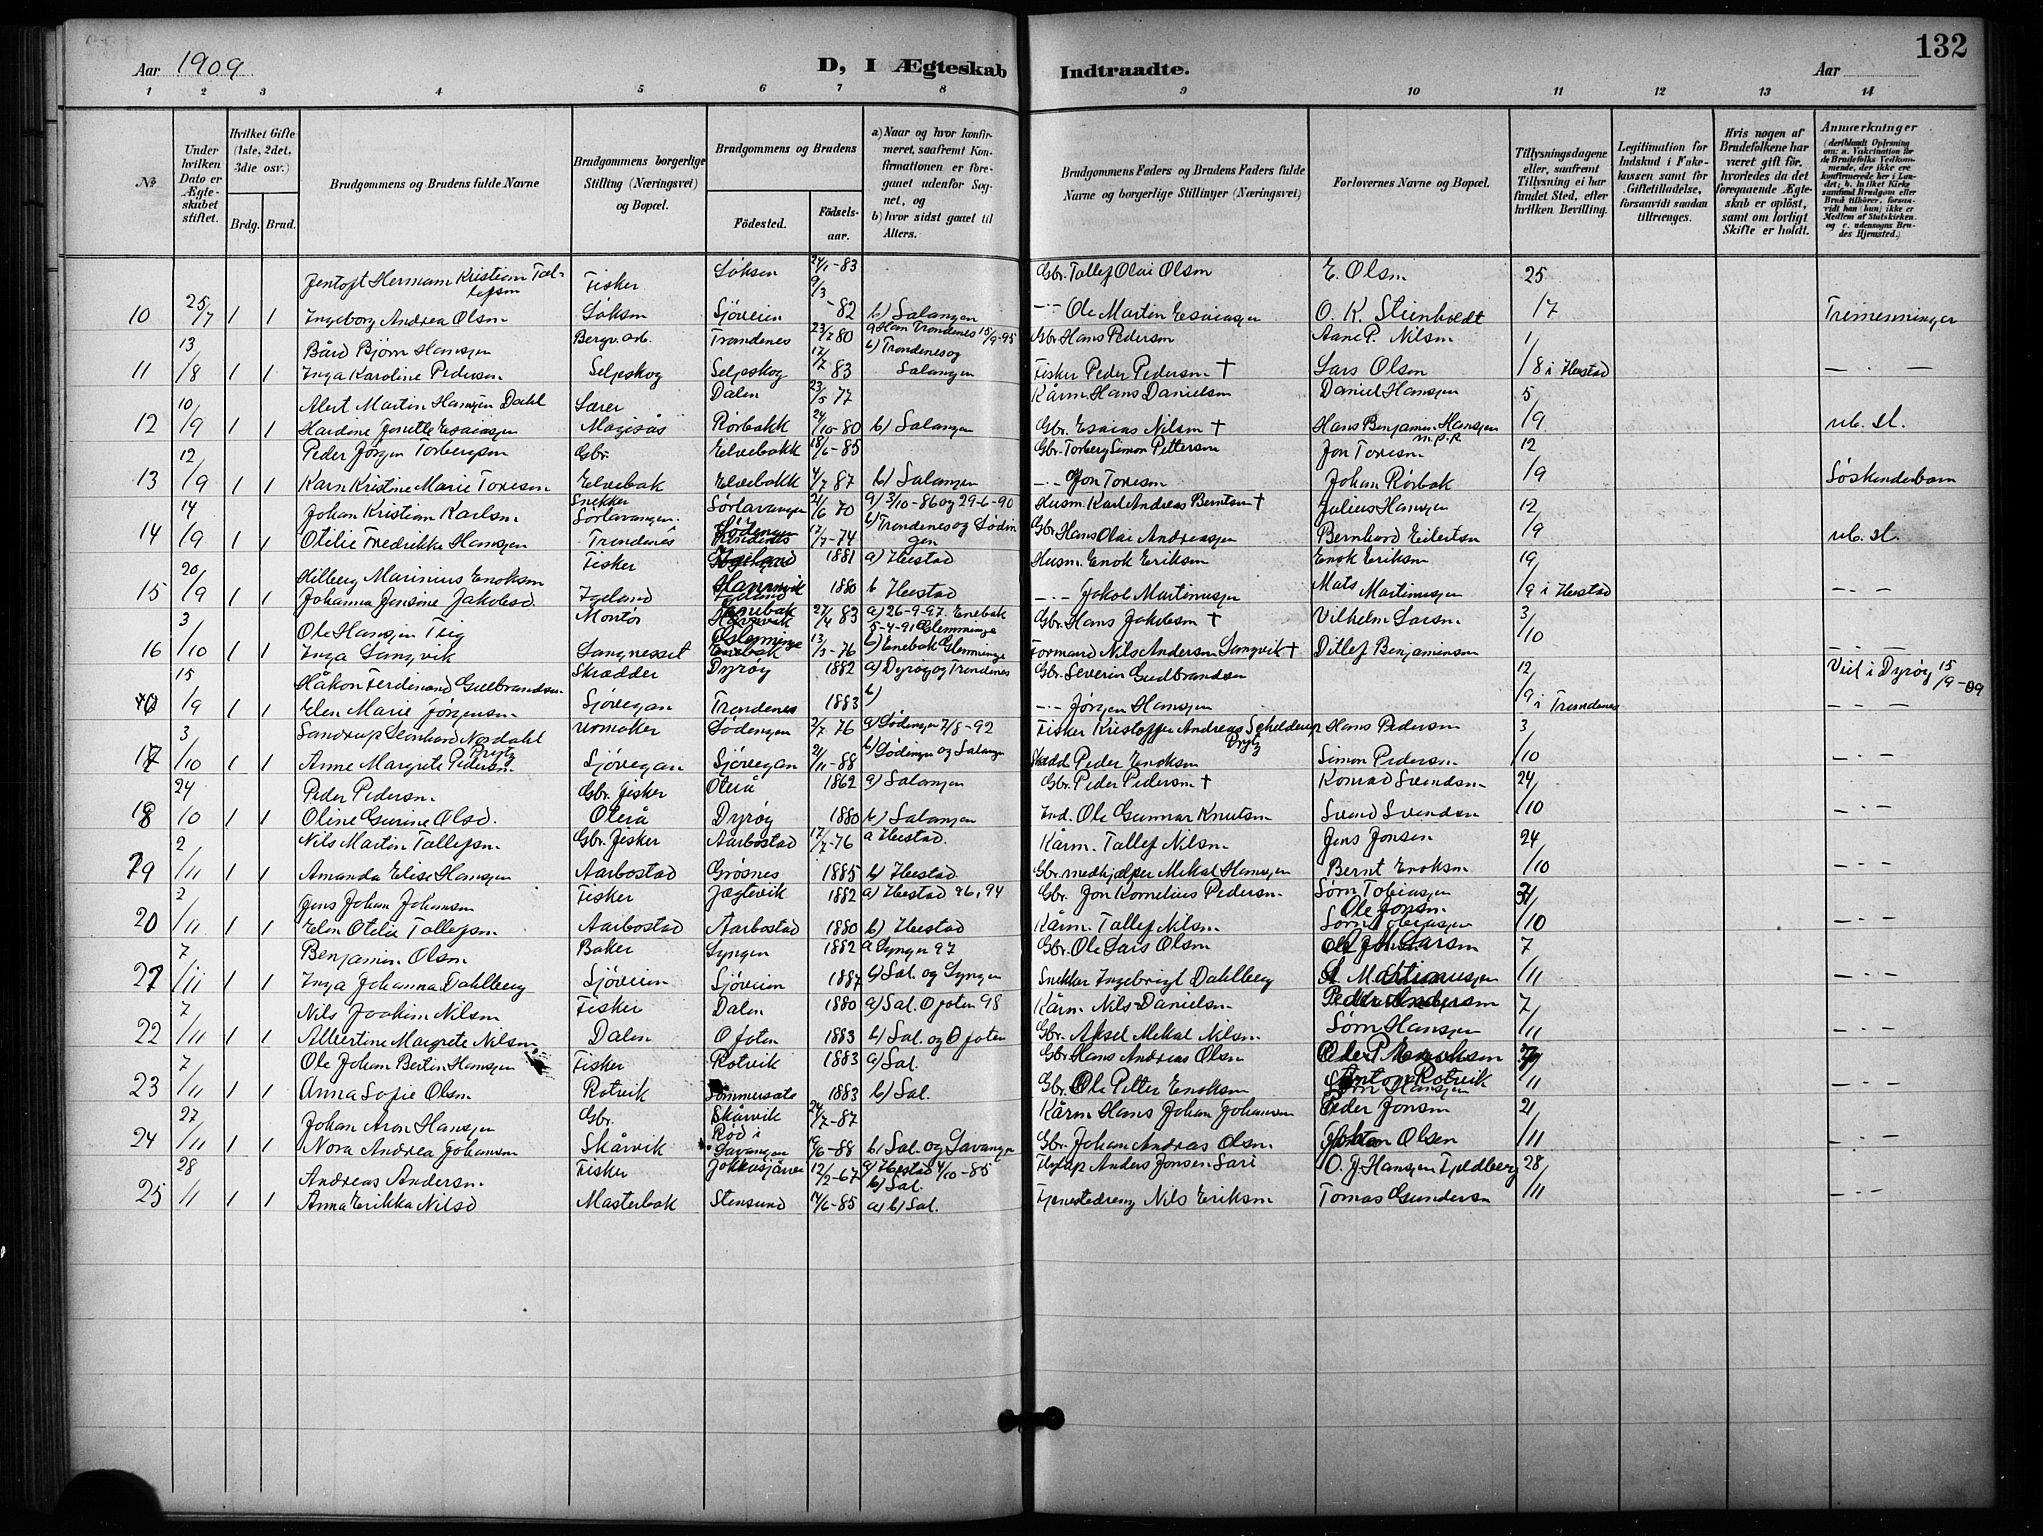 Aar 1909
D, I Ægteskab Indtraadte.
Aar
132
1 2 3 4 5 6 7 8 9 10 11 12 13 14
No.
Under hvilken Dato er Ægteskabet stiftet.
Hvilket Gifte (1ste, 2det, 3die osv.)
Brdg. Brud.
Brudgommens og Brudens fulde Navne
Brudgommens borgerlige Stilling (Næringsvei) og Bopæl.
Brudgommens og Brudens
Födested. Födselsaar.
a) Naar og hvor konfirmeret, saafremt Konfirmationen er foregaaet udenfor Sognet, og
b) hvor sidst gaaet til Alters.
Brudgommens Faders og Brudens Faders fulde Navne og borgerlige Stillinger (Næringsvei)
Forlovernes Navne og Bopæl.
Tillysningsdagene eller, saafremt Tillysning ei har fundet Sted, efter hvilken Bevilling.
Legitimation for Indskud i Enkekassen samt for Giftetilladelse, forsaavidt saadan tiltrænges.
Hvis nogen af Brudefolkene har været gift för, hvorledes da det foregaaende Ægteskab er oplöst, samt om lovligt Skifte er holdt.
Anmærkninger (deriblandt Oplysning om: a. Vakcination for de Brudefolks Vedkommende, der ikke ere konfirmerede her i Landet; b. hvilket Kirkesamfund Brudgom eller Brud tilhörer, forsaavidt han (hun) ikke er Medlem af Statskirken, og c. udensogns Brudes Hjemsted.)
Jentoft Hermann Kristian Tollefsen Fisker Löksen 24/1-83 Gbr. Tollef Olai Olsen E. Olsen 25
10 25/7 1 1 Ingeborg Andrea Olsen Löksen Sjöveien 9/3-82 b) Salangen -.- Ole Martin Esaiassen O. K. Stenhvedt 17 Tremenninger
Bård Bjørn Hansen Bergv. arb. Trondenes 23/7 80 a) Trondenes 15/9-95 Gbr. Hans Pedersen Aane P. Nilsen 1
11 13/8 1 1 Inga Karoline Pedersen Seljeskog Seljeskog 17/7 83 b) Trondenes og Salangen Fisker Peder Pedersen † Lars Olsen /8 i Ibestad — . —
Alert Martin Hansen Dahl Lærer Dalen 23/5 77 Kårm. Hans Danielsen Daniel Hansen 5
12 10/9 1 1 Hardine Jonette Esaiassen Mogisås Rörbakk 24/10-80 b) Salangen Gbr. Esaias Nilsen † Hans Benjamin Hansen m.p.p. /9 ub. sl.
Peder Jörgen Torbergsen Gbr. Elvebakk 18/6-85 Gbr. Torberg Simon Pettersen Jon Toresen 12
13 12/9 1 1 Karn Kristine Marie Toresen Elvebak Elvebakk 4/7 87 b) Salangen -.- Jon Toresen Johan Rörbak /9 Söskendebarn
Johan Kristian Karlsen Snekker Sörlavangen Sörlavangen 21/6 70 a) 3/10-86 og 29-6-90 Husm. Karl Andreas Berntsen † Julius Hansen 12
14 14/9 1 1 Otilie Fredrikke Hansen Trondenes Lödingen 17/7-74 b) Trondenes og Lödingen Gbr. Hans Olai Andreassen Bernhard Eilertsen /9 ub. sl.
Hilberg Marinius Enoksen Fisker Igeland 1881 a) Ibestad Husm. Enok Eriksen Enok Eriksen 19
15 20/9 1 1 Johanna Jensine Jakobsd. Igeland Hamnvik 1880 b Ibestad -.- Jakob Martinussen Mats Martinussen /9 i Ibestad — . —
Ole Hansen Teig Montör Enebak 27/4 83 a) 26-9-97. Enebak 5-4-91 Glemminge Gbr. Hans Jakobsen † Vilhelm Larsen 3
16 3/10 1 1 Inga Langvik Langnesset Glemminge 13/3-76 b) Enebak Glemminge Formand Nils Andersen Langvik † Ditlef Benjaminsen /10 — . —
Håkon Ferdinand Gulbrandsen Skrædder Dyröy 1882 a) Dyröy og Trondenes Gbr. Severin Gudbrandsen 12 Viet i Dyröy 15/9-09
15/9 1 1 Elen Marie Jörgensen Sjövegan Trondenes 1883 b) -.- Jörgen Hansen /9 i Trondenes
Sandrup Leonhard Nordahl Prytz Urmaker Lödingen 2/7 76 a) Lödingen 7/8-92 Fisker Kristoffer Andreas Schelderup Prytz Hans Pedersen 3
17 3/10 1 1 Anne Margrete Pedersen Sjövegan Sjövegan 21/11-88 b) Lödingen og Salangen Skræd Peder Enoksen Simon Pedersen /10 — . —
Peder Pedersen. Gbr. fisker Olerå 1862 a) Salangen Gbr. Peder Pedersen † Konrad Svendsen 24
18 24/10 1 1 Oline Gurine Olsd. Olerå Dyröy 1880 b) Salangen Ind. Ole Gunnar Knutsen Svend Svendsen /10 — . —
Nils Martin Tollefsen. Gbr. fisker Aarbostad 17/7-76 a Ibestad. Kårm. Tollef Nilsen Jens Jensen 24
19 2/11 1 1 Amanda Elise Hansen Aarbostad Grösnes 1885 b) Ibestad Gbr. medhjælper Mikal Hansen Bernt Enoksen /10 — . —
Jens Johan Johansen Fisker Jægtevik 1882 a) Ibestad 96, 94 Gbr. Jon Kornelius Pedersen. Sörn Tobiassen 31
20 2/11 1 1 Elen Otelie Tollefsen. Aarbostad Aarbostad 1880 b) Ibestad Kårm. Tollef Nilsen Ole Jonsen. /10 — . —
Benjamin Olsen Baker Lyngen 1882 a Lyngen 97 Gbr. Ole Lars Olsen Larsen 7
21 7/11 1 1 Inga Johanna Dahlberg Sjöveien Sjöveien 1887 b) Sal. og Lyngen Snekker Ingebrigt Dahlberg Martinussen /11 — . —
Nils Joakim Nilsen Fisker Dalen 1880 a) Sal. Ofoten 98 Kårm. Nils Danielsen Peder Andersen 7
22 7/11 1 1 Albertine Margrete Nilsen Dalen Ofoten 1883 b) Sal. og Ofoten Gbr. Aksel Mikal Nilsen. Sörn Hansen /11 — . —
Ole Johan Bertin Hansen Fisker Rotvik 1883 a) Sal. Gbr. Hans Andreas Olsen
23 7/11 1 1 Anna Sofie Olsen Rotvik Sommersæte 1883 b) Sal. Gbr. Ole Petter Enoksen Anton Rotvik /11 — . —
Johan Aron Hansen Gbr. Skårvik 24/7-87 Kårm Hans Johan Johansen Peder Jonsen 21
24 27/11 1 1 Nora Andrea Johansen Skårvik Röd i Gavangen 19/6-88 b) Sal. og Gavangen Gbr. Johan Andreas Olsen. Johan Olsen /11 — . —
Andreas Andersen. Fisker Jokkasjärvi 12/2-67 a) Ibestad 4/10-85 Flytlap Anders Jonsen Sari O. J. Hansen Fjeldberg 28
25 28/11 1 1 Anna Erikka Nilsd Masterbak Stensund 14/6-85 b) Sal. a) b) Sal. Tjenestedreng Nils Eriksen Tomas Gundersen /11 — . —